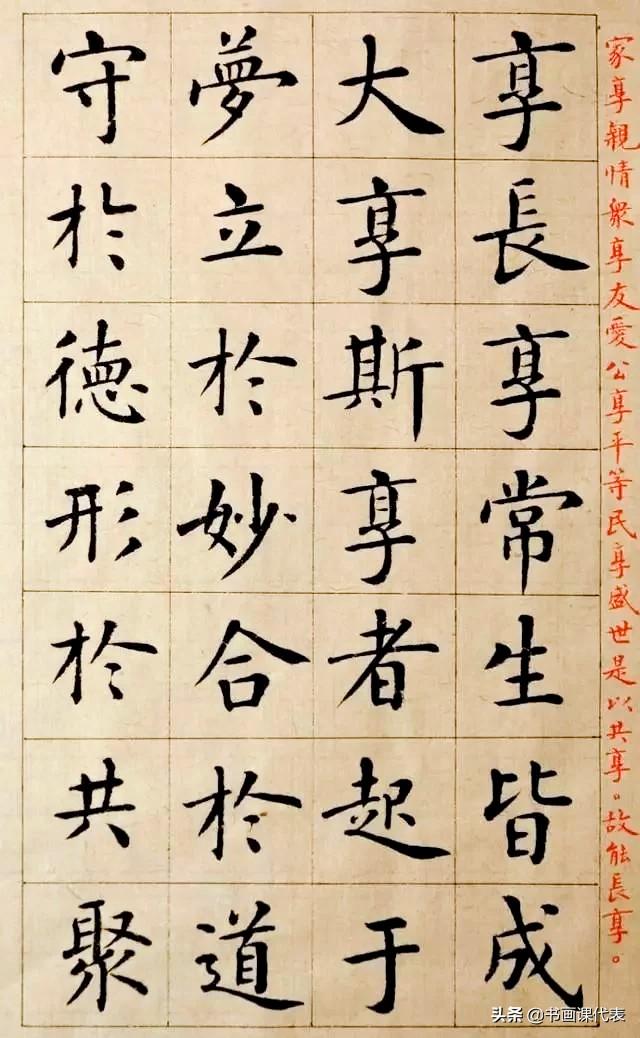 家享親情眾享友愛公享平等民享盛世是以共享。故能長享。
享長享常生皆成
大享斯享者起于
夢立於妙合於道
守於德形於共聚
头条 @书画课代表